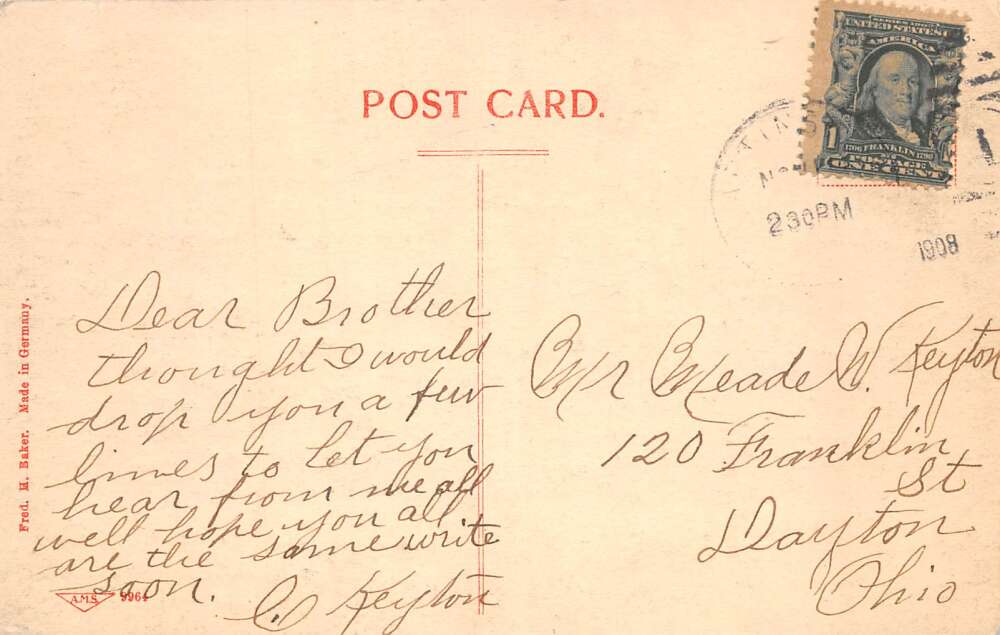 POST CARD.
SERIES 1902
UNITED STATES OF
AMERICA
1
1706 FRANKLIN 1790
POSTAGE
ONE CENT
230PM
1908
Dear Brother
thought I would
drop you a few
lines to let you
hear from me all
well hope you all
are the same write
soon.
C Keyton
Mr Meade W. Keyton
120 Franklin
St
Dayton
Ohio
Fred. M. Baker. Made in Germany.
A.M.S. 9964